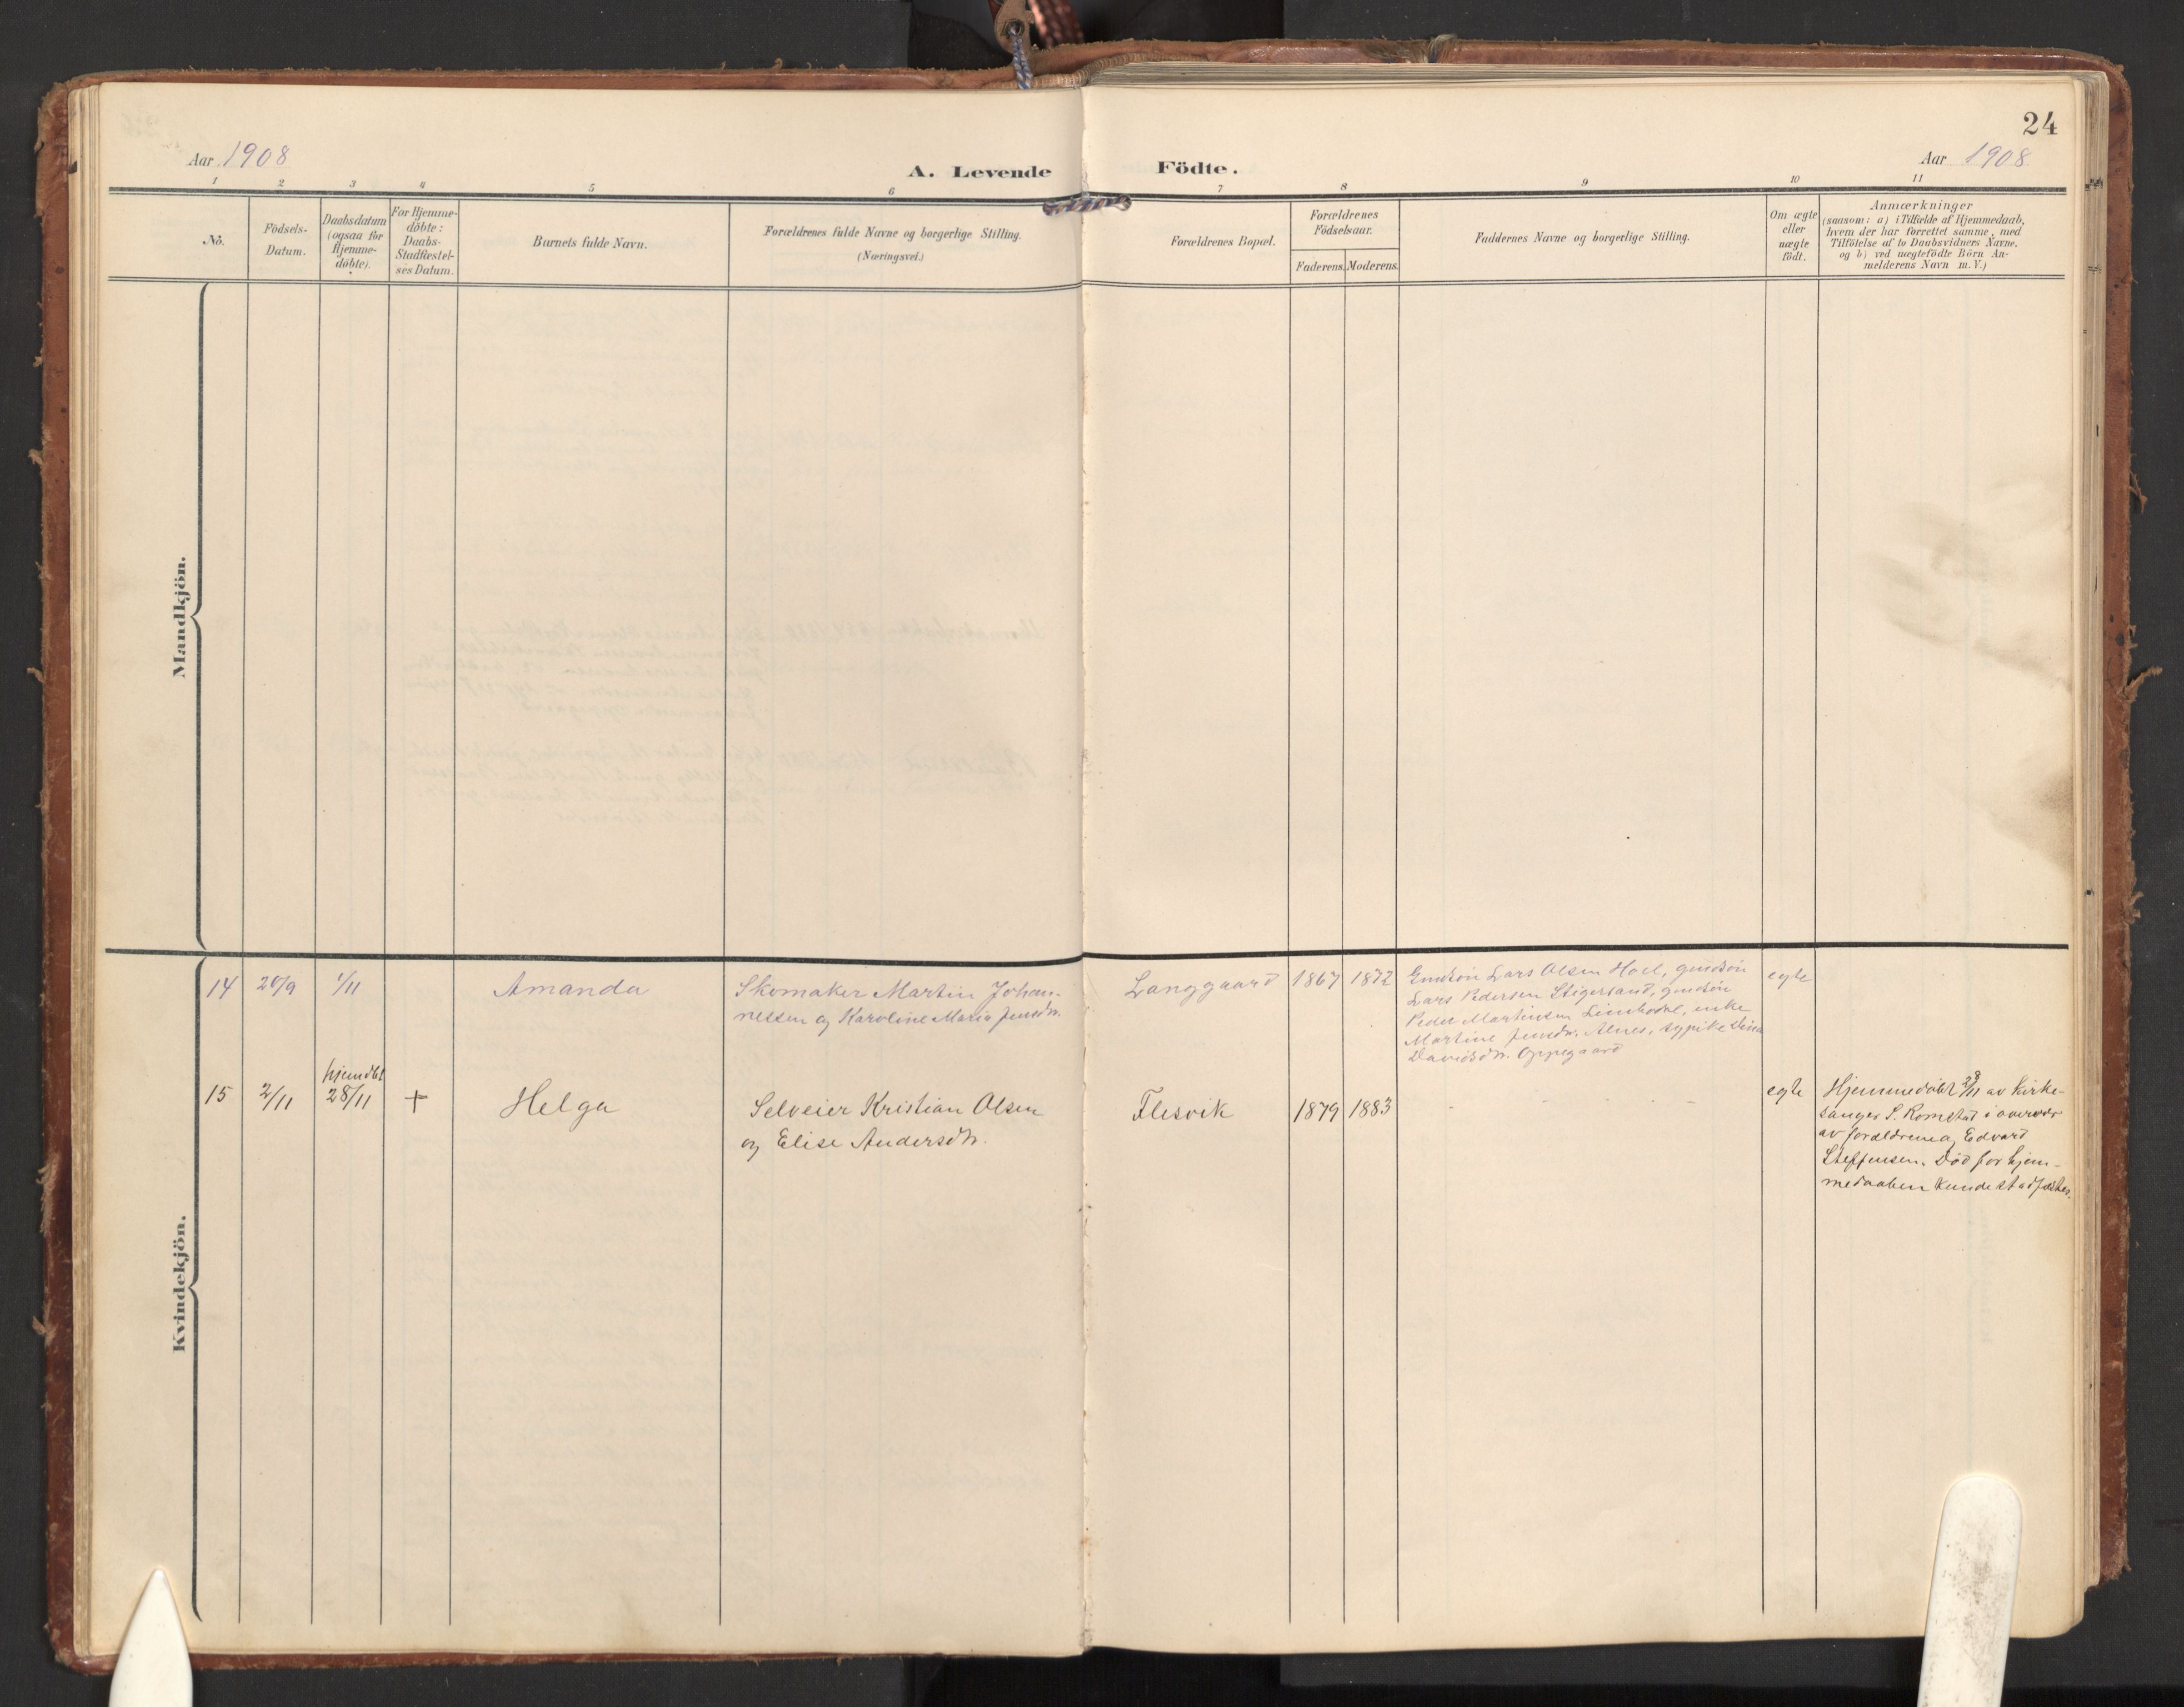 24
Aar 1908
A. Levende Födte.
Aar 1908
1 2 3 4 5 6 7 8 9 10 11
No.
Födsels-
Datum.
Daabsdatum
(ogsaa for
Hjemme-
döbte).
For Hjemme-
döbte:
Daabs-
Stadfæstel-
ses Datum.
Barnets fulde Navn.
Forældrenes fulde Navne og borgerlige Stilling.
(Næringsvei.)
Forældrenes Bopæl.
Forældrenes
Födselsaar.
Faderens. Moderens.
Faddernes Navne og borgerlige Stilling.
Om ægte
eller
uægte
födt.
Anmærkninger
(saasom: a) i Tilfælde af Hjemmedaab,
hvem der har forrettet samme, med
Tilföielse af to Daabsvidners Navne,
og b) ved uægtefödte Börn An-
melderens Navn m. V.)
Mandkjön.
Kvindekjön.
14
20/9
1/11
Amanda
Skomaker Martin Johan-
nessen og Karoline Maria Jensdtr.
Langgaard
1867
1872
Lars Olsen Hoel, gmdsön
Lars Pedersen Stigersand, gmdsön
Peder Martinsen, enke
Martine Jensdtr. Alnes,
Davidsdtr. Oppegaard
egte
15
2/11
hjemdbt
28/11
+
Helga
Selveier Kristian Olsen
og Elise Andersdtr.
Flesvik
1879
1883
- - -
egte
Hjemmedöbt 28/11 av kirke-
sanger S. Komstad i overvær
av forældrene og Edvard
Steffensen. Död för hjem-
medaaben kunde stadfæstes.